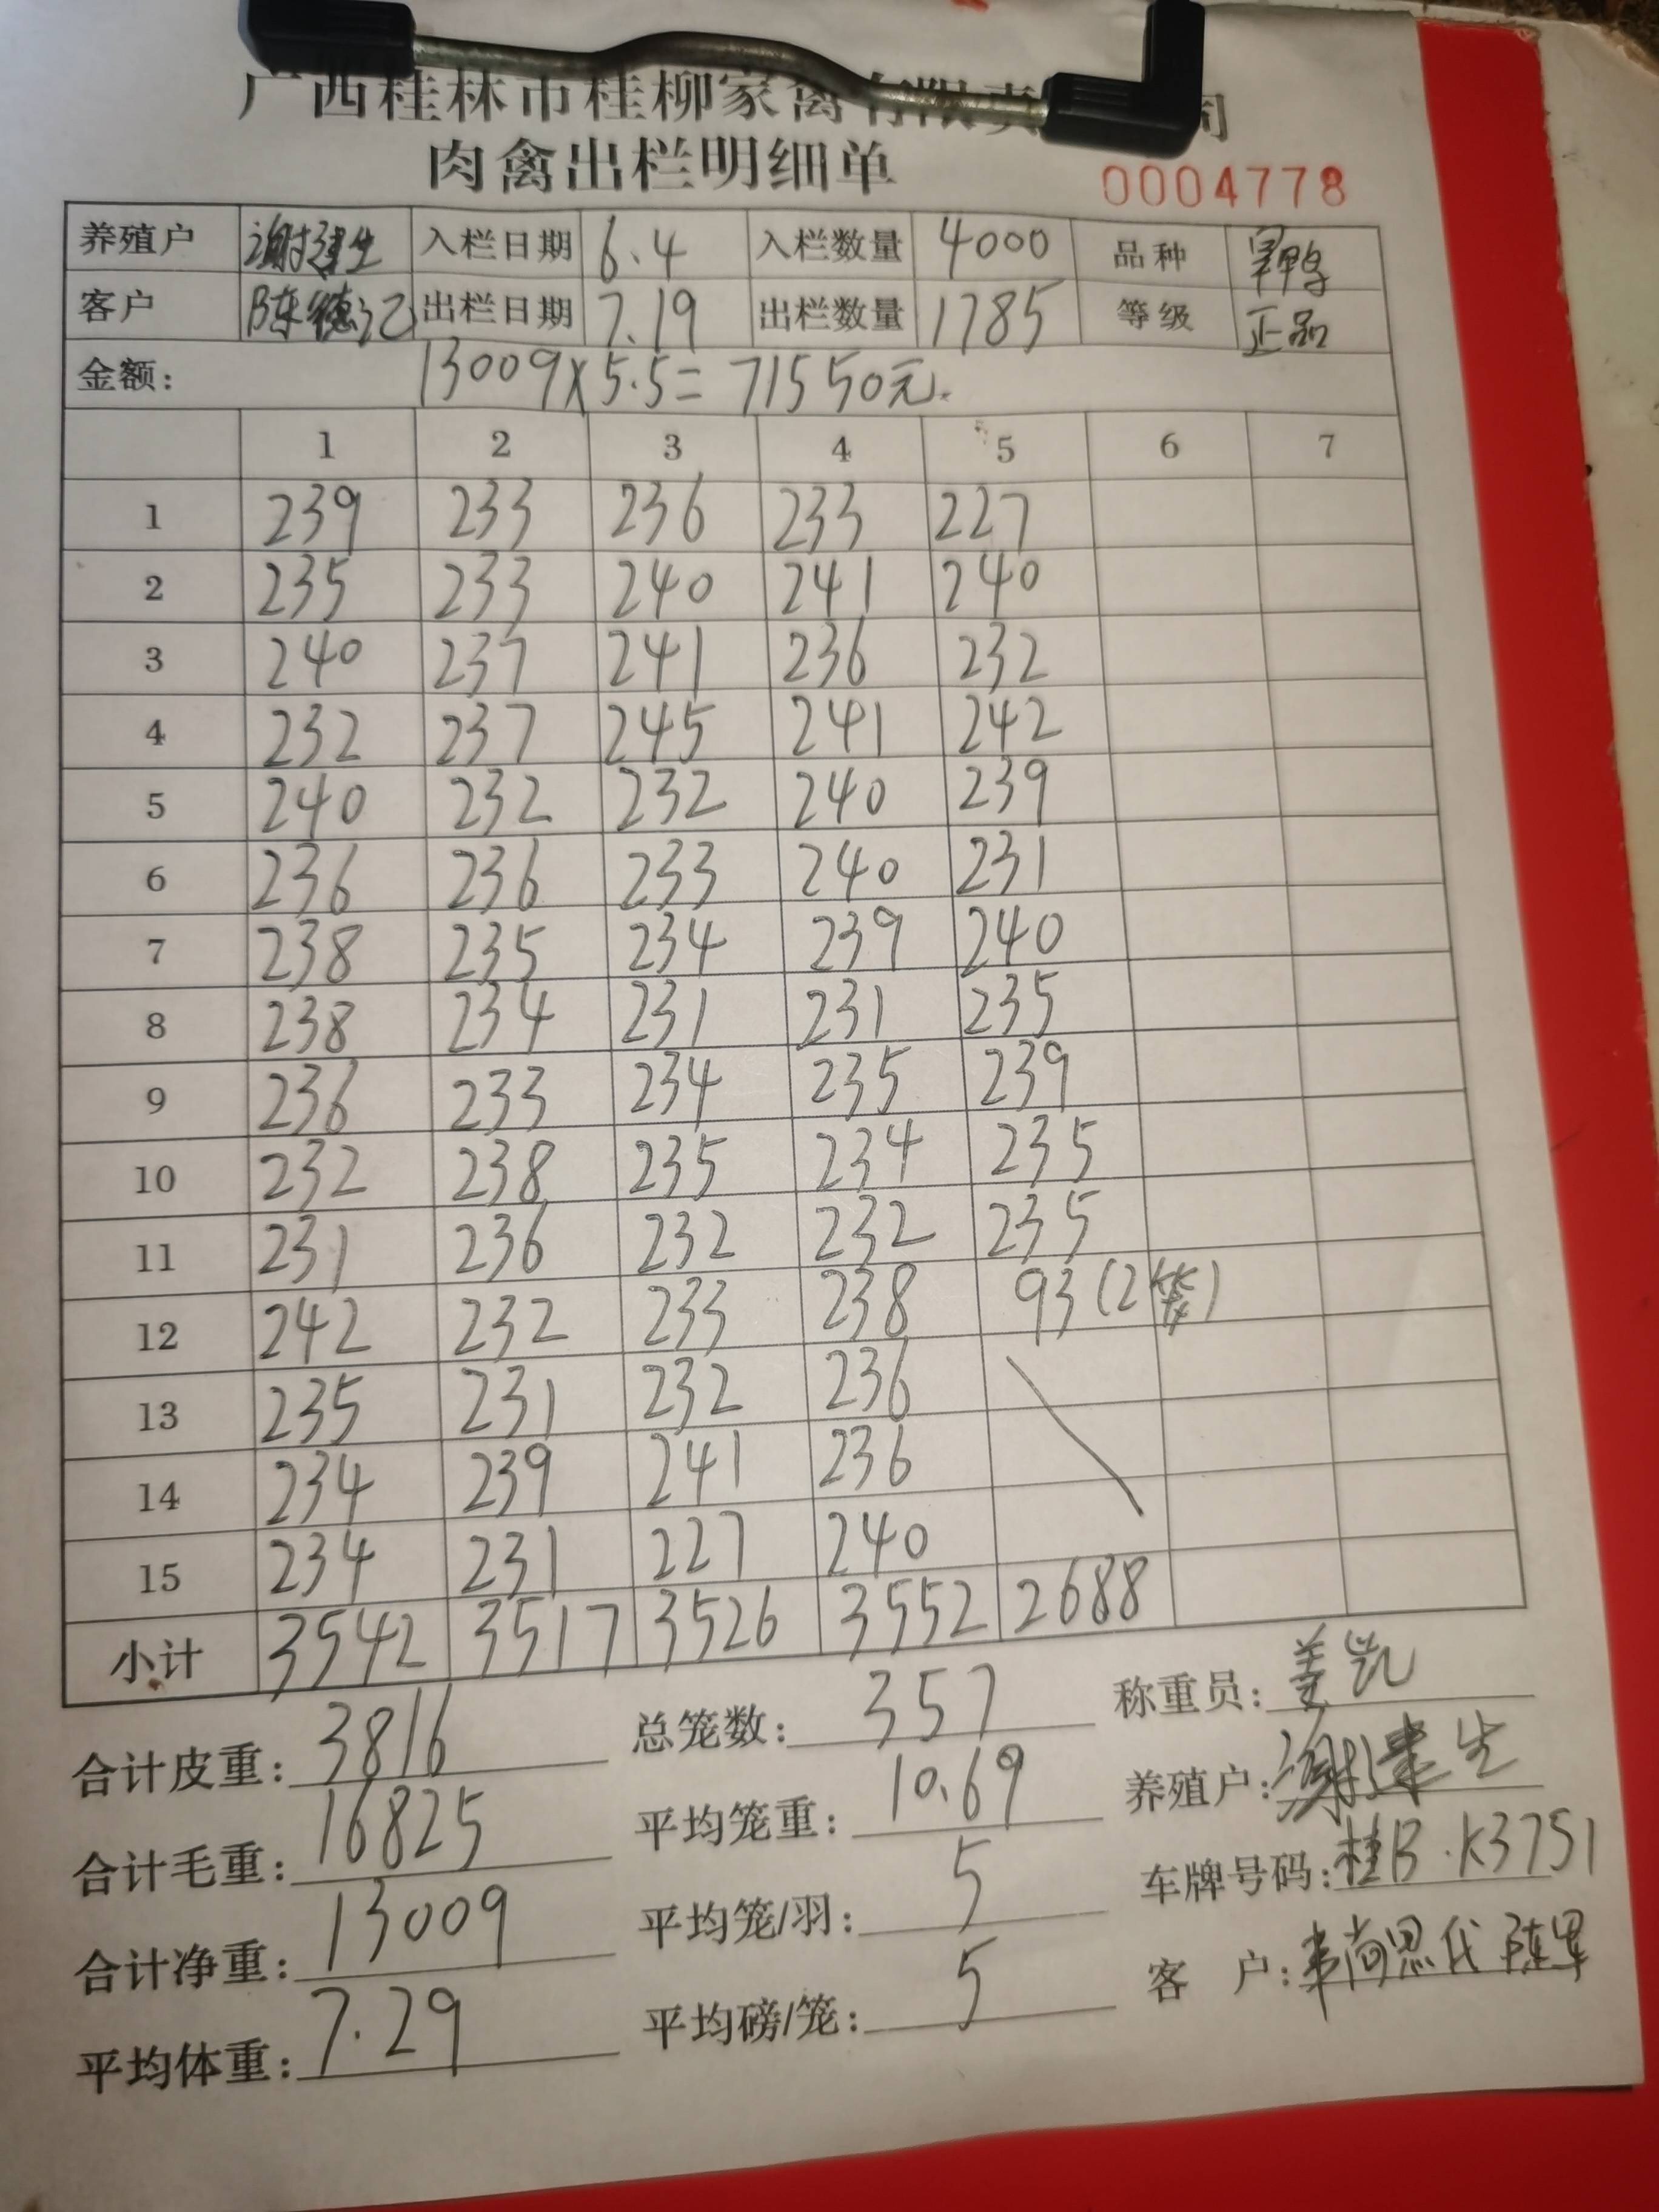 广西桂林市桂柳家禽有限责 司
肉禽出栏明细单
0004778
养殖户 谢建生 入栏日期 6.4 入栏数量 4000 品种
客户 陈德记 出栏日期 7.19 出栏数量 1785 等级 正品
金额: 13009×5.5=71550元.
1 2 3 4 5 6 7
1 239 233 236 233 227
2 235 233 240 241 240
3 240 237 241 236 232
4 232 237 245 241 242
5 240 232 232 240 239
6 236 236 233 240 231
7 238 235 234 239 240
8 238 234 231 231 235
9 236 233 234 235 239
10 232 238 235 234 235
11 231 236 232 232 235
12 242 232 233 238 93(2袋)
13 235 231 232 236
14 234 239 241 236
15 234 231 227 240
小计 3542 3517 3526 3552 2688
合计皮重: 3816 总笼数: 357 称重员: 姜凯
合计毛重: 16825 平均笼重: 10.69 养殖户: 谢建生
合计净重: 13009 平均笼/羽: 5 车牌号码: 桂B·K3751
平均体重: 7.29 平均磅/笼: 5 客 户: 韦尚恩代